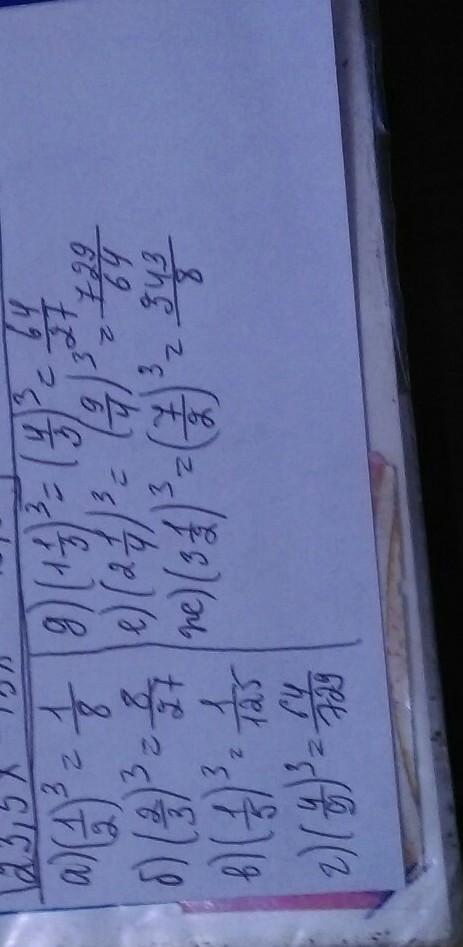 а) (1/2)³ = 1/8
б) (2/3)³ = 8/27
в) (1/5)³ = 1/125
г) (4/9)³ = 64/729
д) (1 1/3)³ = (4/3)³ = 64/27
е) (2 1/4)³ = (9/4)³ = 729/64
ж) (3 1/2)³ = (7/2)³ = 343/8